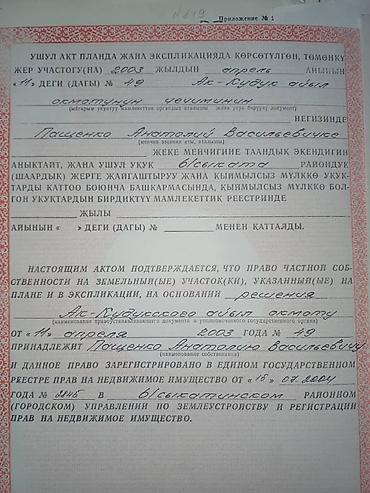 Приложение № 1
УШУЛ АКТ ПЛАНДА ЖАНА ЭКСПЛИКАЦИЯДА КӨРСӨТҮЛГӨН, ТӨМӨНКҮ
ЖЕР УЧАСТОГУ(НА) 2003 ЖЫЛДЫН апрель АЙЫНЫН
"11" ДЕГИ (ДАГЫ) № 49 Ак-Кудук айыл
окмотунун чечиминин
НЕГИЗИНДЕ
Пащенко Анатолий Васильевичке
ЖЕКЕ МЕНЧИГИНЕ ТААНДЫК ЭКЕНДИГИН
АНЫКТАЙТ, ЖАНА УШУЛ УКУК б/сыката РАЙОНДУК
(ШААРДЫК) ЖЕРГЕ ЖАЙГАШТЫРУУ ЖАНА КЫЙМЫЛСЫЗ МҮЛККӨ УКУК-
ТАРДЫ КАТТОО БОЮНЧА БАШКАРМАСЫНДА, КЫЙМЫЛСЫЗ МҮЛККӨ БОЛ-
ГОН УКУКТАРДЫН БИРДИКТҮҮ МАМЛЕКЕТТИК РЕЕСТРИНДЕ
ЖЫЛЫ
АЙЫНЫН « » ДЕГИ (ДАГЫ) № МЕНЕН КАТТАЛДЫ.
НАСТОЯЩИМ АКТОМ ПОДТВЕРЖДАЕТСЯ, ЧТО ПРАВО ЧАСТНОЙ СОБ-
СТВЕННОСТИ НА ЗЕМЕЛЬНЫЙ(ЫЕ) УЧАСТОК(КИ), УКАЗАННЫЙ(ЫЕ) НА
ПЛАНЕ И В ЭКСПЛИКАЦИИ, НА ОСНОВАНИИ решения
Ак-Кудукского айыл окмоту
(наименование правоустанавливающего документа и уполномоченного государственного органа)
ОТ «11» апреля 2003 ГОДА № 49
ПРИНАДЛЕЖИТ Пащенко Анатолию Васильевичу
(наименование собственника)
И ДАННОЕ ПРАВО ЗАРЕГИСТРИРОВАНО В ЕДИНОМ ГОСУДАРСТВЕННОМ
РЕЕСТРЕ ПРАВ НА НЕДВИЖИМОЕ ИМУЩЕСТВО ОТ «15» 07.2004
ГОДА № В б/сыкатинском РАЙОННОМ
(ГОРОДСКОМ) УПРАВЛЕНИИ ПО ЗЕМЛЕУСТРОЙСТВУ И РЕГИСТРАЦИИ
ПРАВ НА НЕДВИЖИМОЕ ИМУЩЕСТВО.